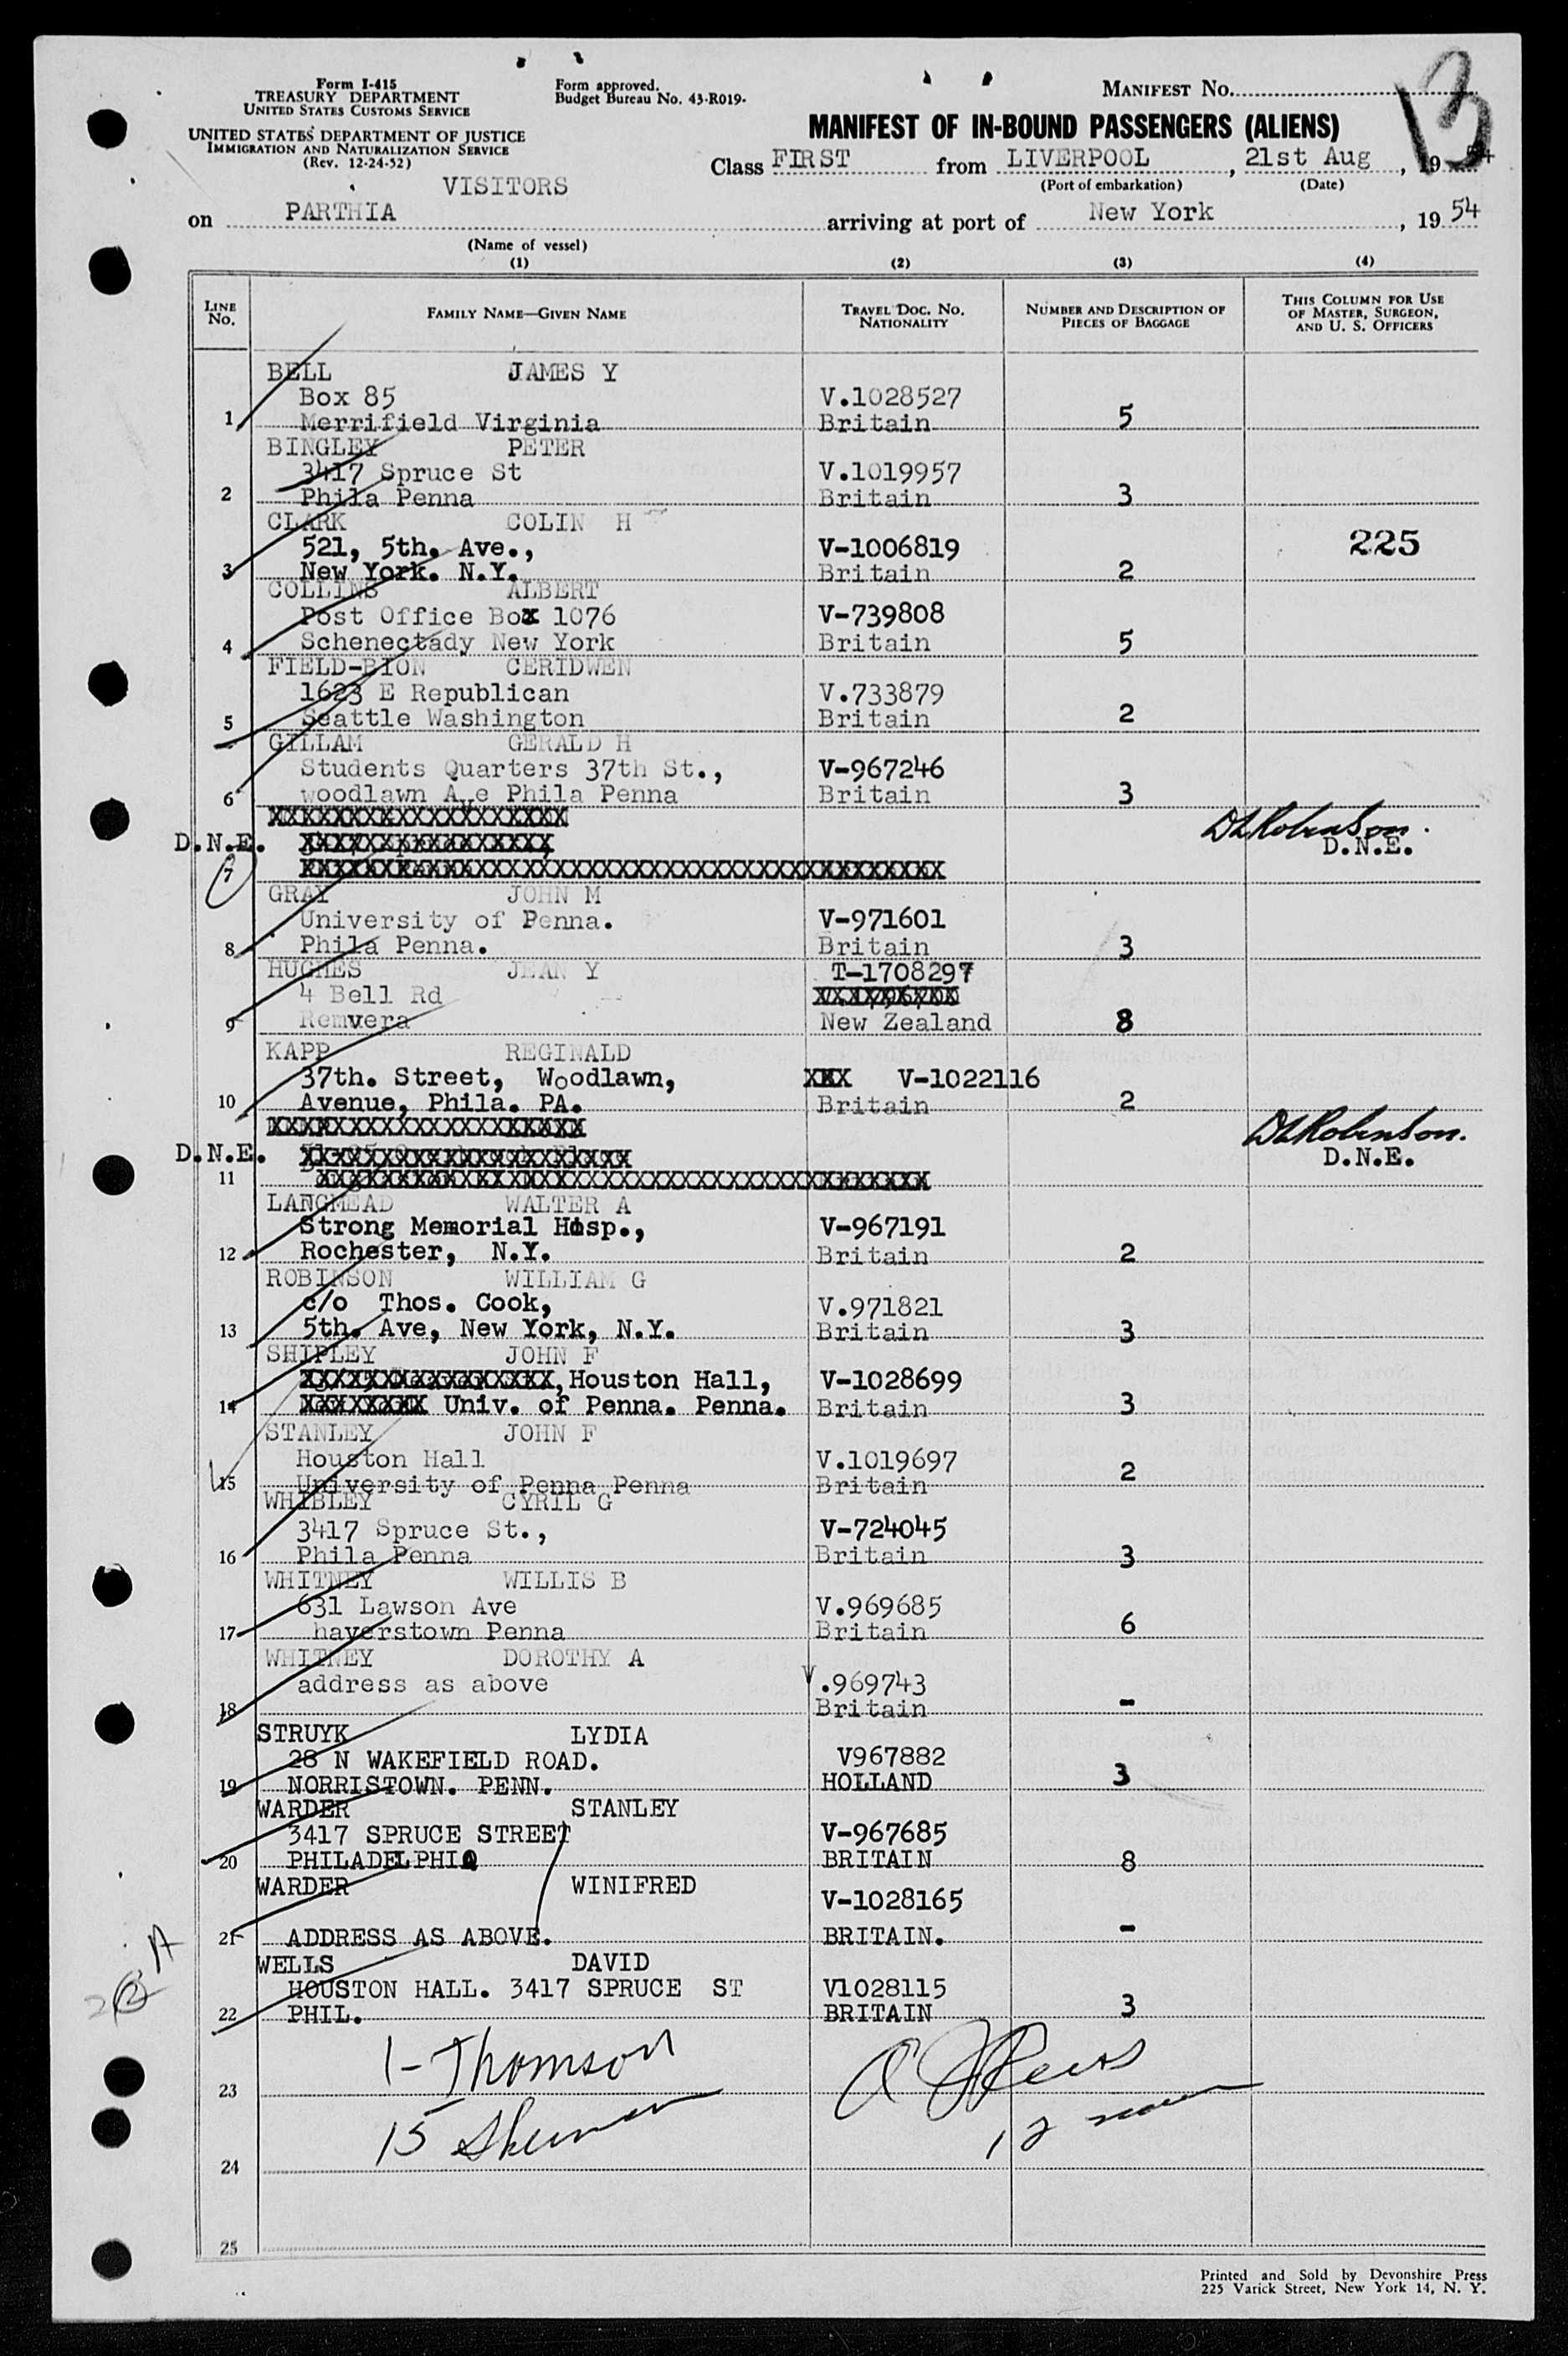 Form I-415
TREASURY DEPARTMENT
UNITED STATES CUSTOMS SERVICE
UNITED STATES DEPARTMENT OF JUSTICE
IMMIGRATION AND NATURALIZATION SERVICE
(Rev. 12-24-52)
Form approved.
Budget Bureau No. 43-R019.
MANIFEST NO.
13
MANIFEST OF IN-BOUND PASSENGERS (ALIENS)
Class FIRST from LIVERPOOL, 21st Aug, 1954
(Port of embarkation) (Date)
VISITORS
on PARTHIA arriving at port of New York, 1954
(Name of vessel)
(1) (2) (3) (4)
LINE NO. FAMILY NAME—GIVEN NAME TRAVEL DOC. NO. NATIONALITY NUMBER AND DESCRIPTION OF PIECES OF BAGGAGE THIS COLUMN FOR USE OF MASTER, SURGEON, AND U. S. OFFICERS
BELL JAMES Y
Box 85 V.1028527
1 Merrifield Virginia Britain 5
BINGLEY PETER
3417 Spruce St V.1019957
2 Phila Penna Britain 3
CLARK COLIN H
521, 5th. Ave., V-1006819 225
3 New York. N.Y. Britain 2
COLLINS ALBERT
Post Office Box 1076 V-739808
4 Schenectady New York Britain 5
FIELD-BION CERIDWEN
1623 E Republican V.733879
5 Seattle Washington Britain 2
GILLAM GERALD H
Students Quarters 37th St., V-967246
6 woodlawn Ave Phila Penna Britain 3
D.N.E. DLRobinson.
D.N.E.
7
GRAY JOHN M
University of Penna. V-971601
8 Phila Penna. Britain 3
HUGHES JEAN Y T-1708297
4 Bell Rd
9 Remvera New Zealand 8
KAPP REGINALD
37th. Street, Woodlawn, XXX V-1022116
10 Avenue, Phila. PA. Britain 2
D.N.E. DLRobinson.
D.N.E.
11
LANGMEAD WALTER A
Strong Memorial Hosp., V-967191
12 Rochester, N.Y. Britain 2
ROBINSON WILLIAM G
c/o Thos. Cook, V.971821
13 5th. Ave, New York, N.Y. Britain 3
SHIPLEY JOHN F
Houston Hall, V-1028699
14 Univ. of Penna. Penna. Britain 3
STANLEY JOHN F
Houston Hall V.1019697
15 University of Penna Penna Britain 2
WHIBLEY CYRIL G
3417 Spruce St., V-724045
16 Phila Penna Britain 3
WHITNEY WILLIS B
631 Lawson Ave V.969685
17 haverstown Penna Britain 6
WHITNEY DOROTHY A
address as above V.969743
18 Britain -
STRUYK LYDIA
28 N WAKEFIELD ROAD. V967882
19 NORRISTOWN. PENN. HOLLAND 3
WARDER STANLEY
3417 SPRUCE STREET V-967685
20 PHILADELPHIA BRITAIN 8
WARDER WINIFRED
V-1028165
21 ADDRESS AS ABOVE. BRITAIN. -
WELLS DAVID
HOUSTON HALL. 3417 SPRUCE ST V1028115
22 PHIL. BRITAIN 3
1-Thomson
23
15
12
24
25
Printed and Sold by Devonshire Press
225 Varick Street, New York 14, N. Y.